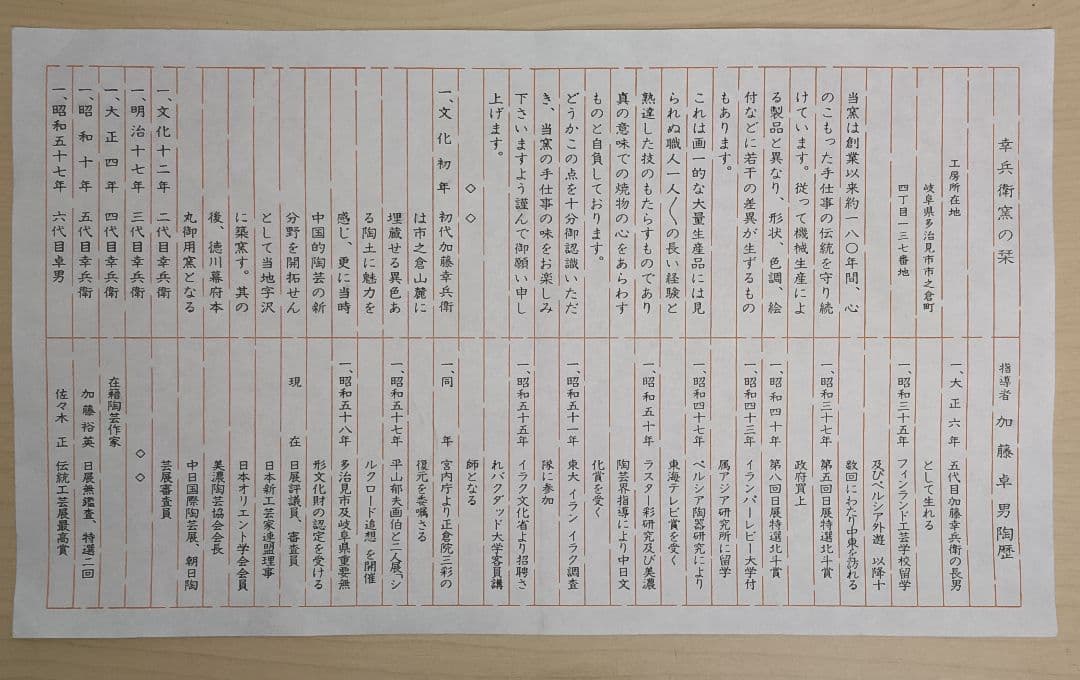 幸兵衛窯の栞
工房所在地
岐阜県多治見市市之倉町
四丁目一三七番地
当窯は創業以来約一八〇年間、心
のこもった手仕事の伝統を守り続
けています。従って機械生産によ
る製品と異なり、形状、色調、絵
付などに若干の差異が生ずるもの
もあります。
これは画一的な大量生産品には見
られぬ職人一人〳〵の長い経験と
熟達した技のもたらすものであり
真の意味での焼物の心をあらわす
ものと自負しております。
どうかこの点を十分御認識いただ
き、当窯の手仕事の味をお楽しみ
下さいますよう謹んで御願い申し
上げます。
◇ ◇
一、文化初年 初代加藤幸兵衛
は市之倉山麓に
埋蔵せる異色あ
る陶土に魅力を
感じ、更に当時
中国的陶芸の新
分野を開拓せん
として当地字沢
に築窯す。其の
後、徳川幕府本
丸御用窯となる
一、文化十二年 二代目幸兵衛
一、明治十七年 三代目幸兵衛
一、大正四年 四代目幸兵衛
一、昭和十年 五代目幸兵衛
一、昭和五十七年 六代目卓男
指導者 加藤卓男陶歴
一、大正六年 五代目加藤幸兵衛の長男
として生れる
一、昭和三十五年 フィンランド工芸学校留学
及びペルシア外遊 以降十
数回にわたり中東を訪れる
一、昭和三十七年 第五回日展特選北斗賞
政府買上
一、昭和四十年 第八回日展特選北斗賞
一、昭和四十三年 イランパーレビー大学付
属アジア研究所に留学
一、昭和四十七年 ペルシア陶器研究により
東海テレビ賞を受く
一、昭和五十年 ラスター彩研究及び美濃
陶芸界指導により中日文
化賞を受く
一、昭和五十一年 東大イランイラク調査
隊に参加
一、昭和五十五年 イラク文化省より招聘さ
れバクダッド大学客員講
師となる
一、同年 宮内庁より正倉院三彩の
復元を委嘱さる
一、昭和五十七年 平山郁夫画伯と二人展「シ
ルクロード追想」を開催
一、昭和五十八年 多治見市及岐阜県重要無
形文化財の認定を受ける
現在 日展評議員、審査員
日本新工芸家連盟理事
日本オリエント学会会員
美濃陶芸協会会長
中日国際陶芸展、朝日陶
芸展審査員
◇ ◇
在籍陶芸作家
加藤裕英 日展無鑑査、特選二回
佐々木正 伝統工芸展最高賞